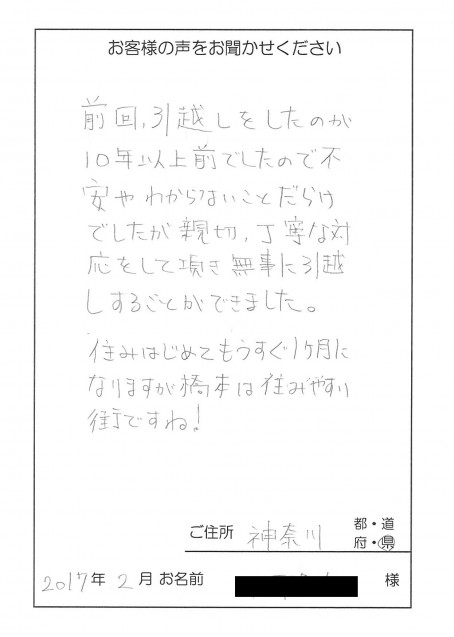 お客様の声をお聞かせください
前回、引越しをしたのが
10年以上前でしたので不
安やわからないことだらけ
でしたが親切、丁寧な対
応をして頂き無事に引越
しすることができました。
住みはじめてもうすぐ1ヶ月に
なりますが橋本は住みやすい
街ですね!
ご住所 神奈川 都・道
府・県
2017年 2月 お名前 様